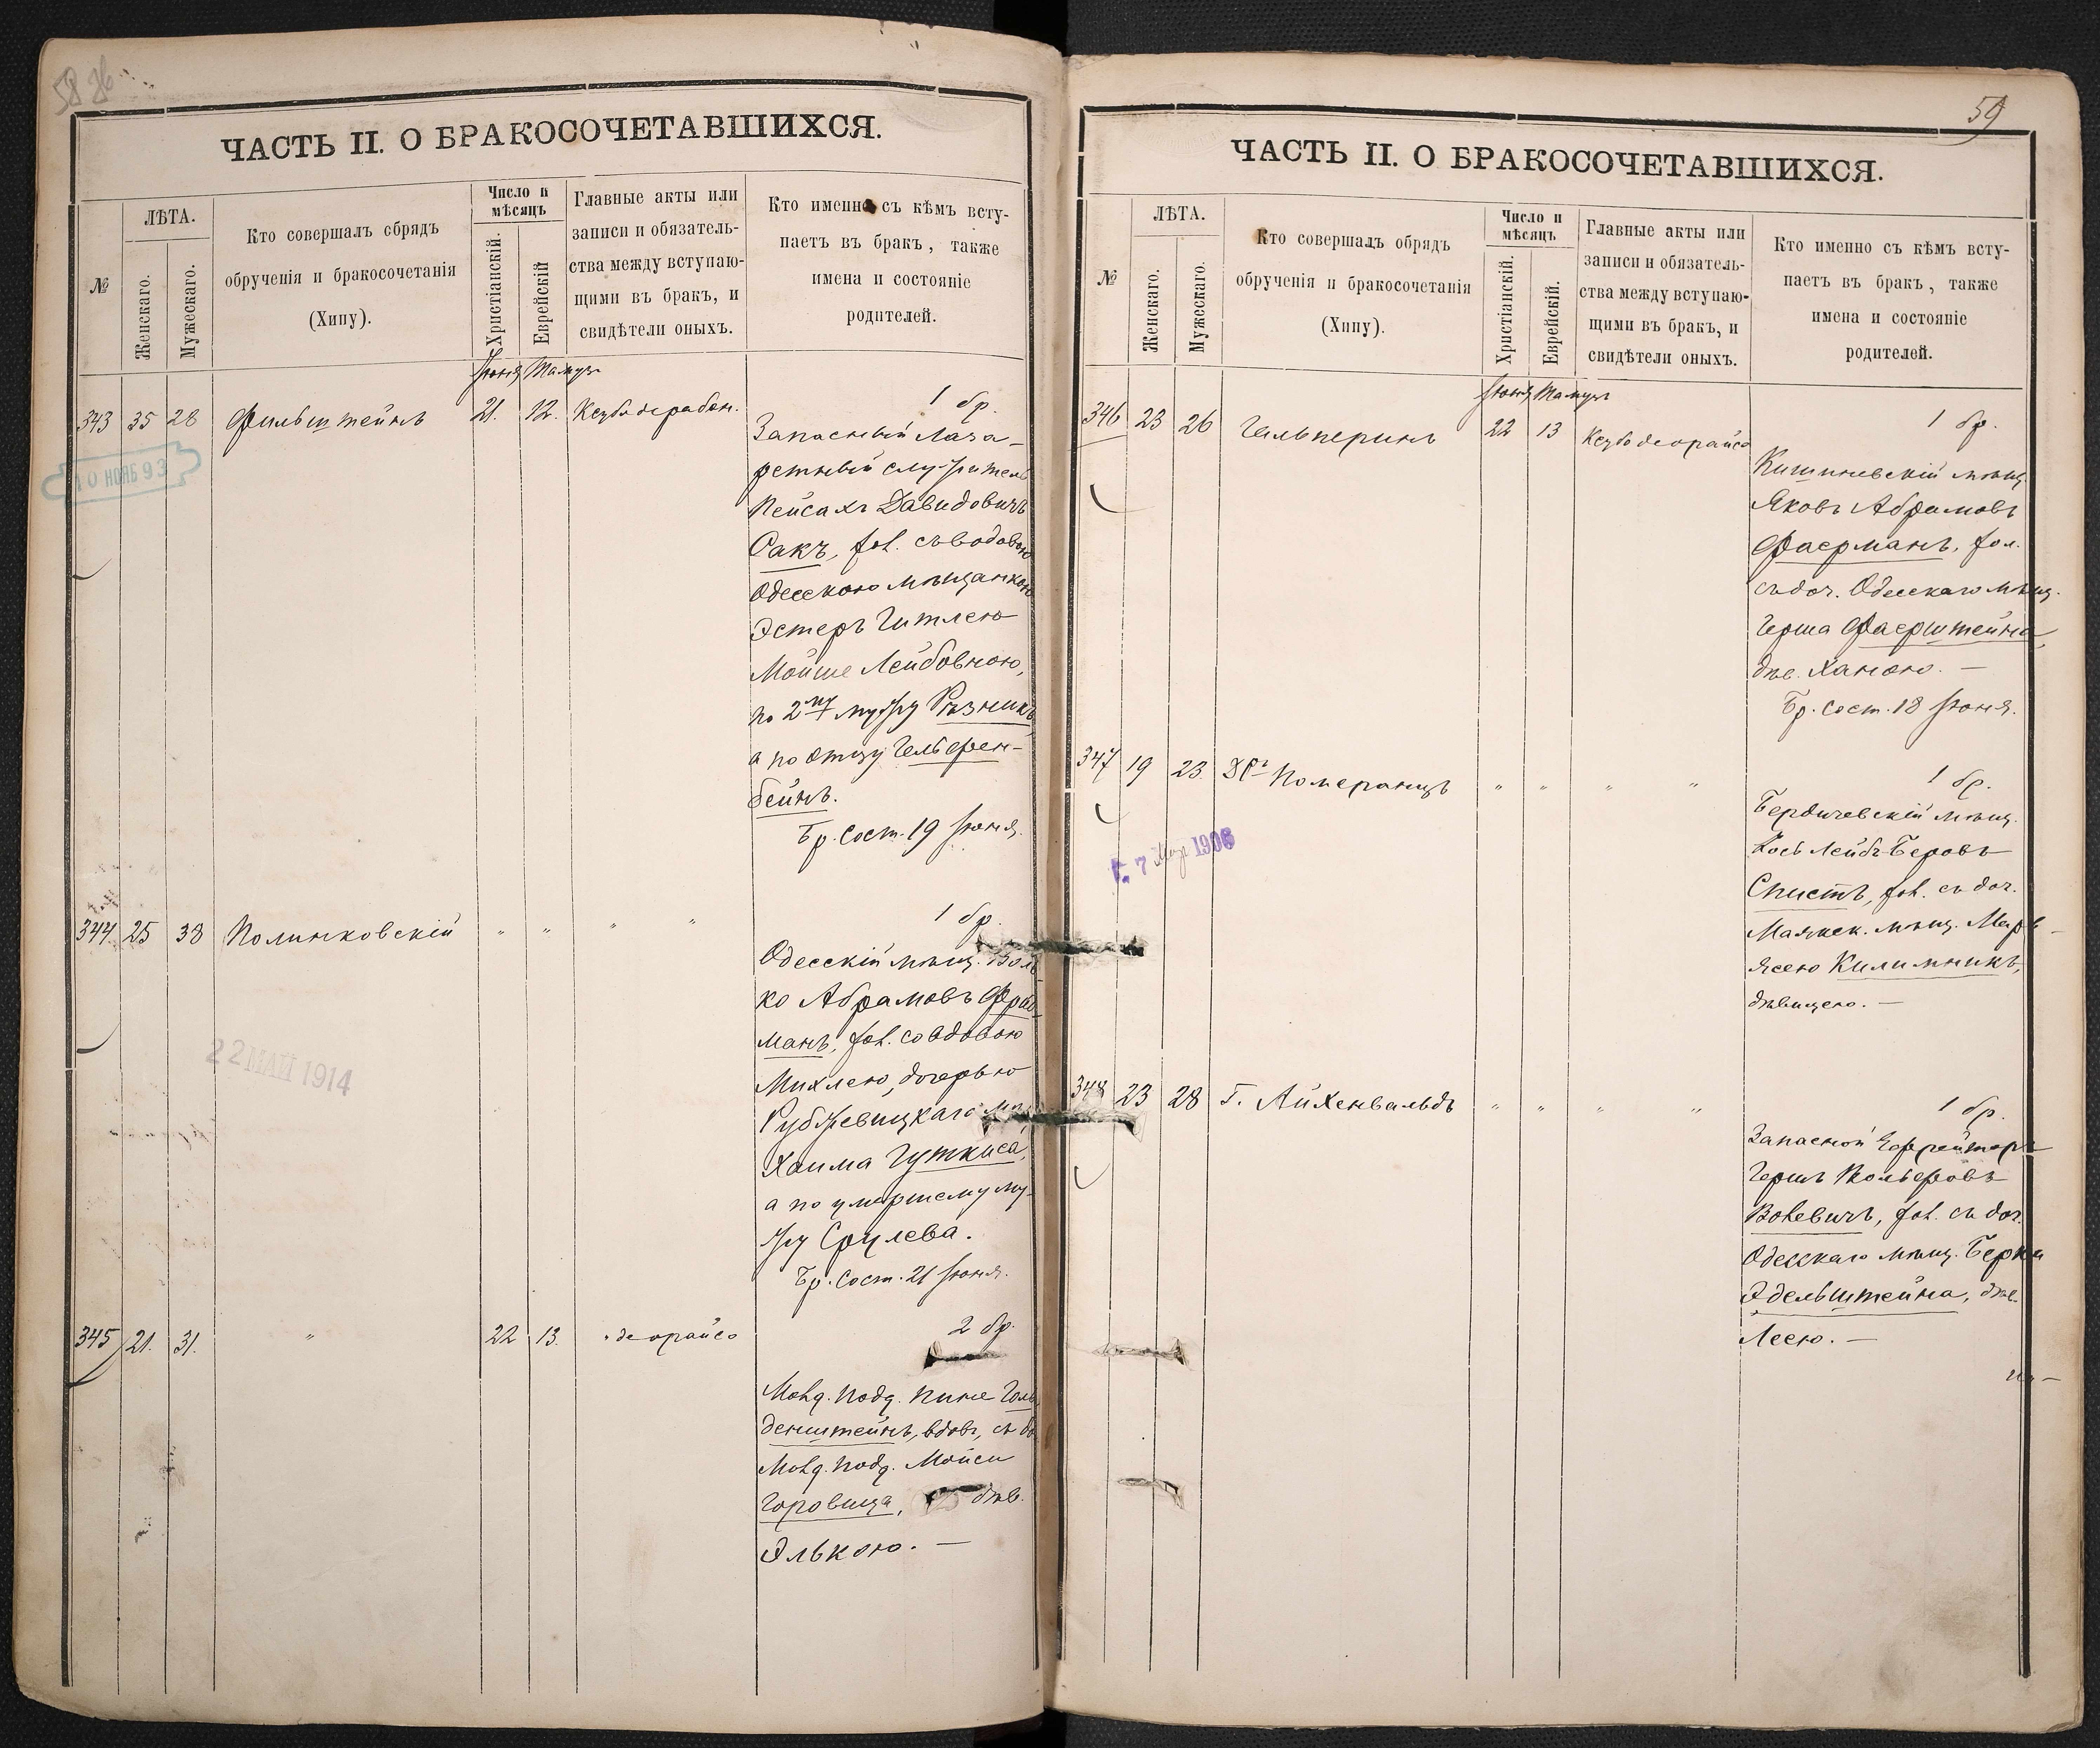 58 26
ЧАСТЬ II. О БРАКОСОЧЕТАВШИХСЯ.
№
ЛѢТА.
Женскаго.
Мужескаго.
Кто совершалъ обрядъ
обрученія и бракосочетанія
(Хипу).
Число и
мѣсяцъ
Христіанскій.
Еврейскій
Главные акты или
записи и обязатель-
ства между вступаю-
щими въ бракъ, и
свидѣтели оныхъ.
Кто именно съ кѣмъ всту-
паетъ въ бракъ, также
имена и состояніе
родителей.
Іюня Тамузъ
343 35 28 Фильштейнъ 21. 12. Ксубо дерабон.
1 бр.
Запасный Лаза-
ретный служитель
Пейсахъ Давидовичъ
Сакъ, хол. съ вдовою
Одесскою мѣщанкою
Эстеръ Гитлею
Мойше Лейбовною,
по 2му мужу Рѣзникъ
а по отцу Гельфен-
бейнъ.
Бр. сост. 19 Іюня.
10 НОЯБ 93
344 25 38 Полинковскій " " " "
1 бр.
Одесскій мѣщ. Воль
ко Абрамовъ Фрид
манъ, хол. со вдовою
Михлею, дочерью
Хаима Гуткиса,
а по умершему му-
жу Срулева.
Бр. сост. 21 Іюня.
22 МАЙ 1914
345 21. 31. " 22 13. " деорайсо
2 бр.
Молд. подд. ПинеГоль
денштейнъ, вдов, съ до
Молд. подд. Мойси
Горовица, дѣв.
Элькою. —
59
ЧАСТЬ II. О БРАКОСОЧЕТАВШИХСЯ.
№
ЛѢТА.
Женскаго.
Мужескаго.
Кто совершалъ обрядъ
обрученія и бракосочетанія
(Хипу).
Число и
мѣсяцъ
Христіанскій.
Еврейскій.
Главные акты или
записи и обязатель-
ства между вступаю-
щими въ бракъ, и
свидѣтели оныхъ.
Кто именно съ кѣмъ всту-
паетъ въ бракъ, также
имена и состояніе
родителей.
Іюня Тамузъ
346 23 26 Гальперинъ 22 13 Ксубо деорайсо
1 бр.
Кишиневскій мѣщ.
Яковъ Абрамовъ
Фаерманъ, хол.
съ доч. Одесскаго мѣщ.
Герша Фаерштейна,
дѣв. Ханою. —
Бр. сост. 18 Іюня.
347 19 23. Померанцъ " " " "
1 бр.
Бердичевскій мѣщ.
Лейбъ Беровъ
Спистъ, хол. съ доч.
Маякск. мѣщ.
Килимникъ,
дѣвицею. —
7 Мар 1906
348 23 28 Г. Айхенвальдъ " " " "
1 бр.
Запасной Ефрейторъ
Гершъ Вольфовъ
Вокевичъ, хол. съ доч.
Одесскаго мѣщ. Берки
Эдельштейна, дѣв.
Леею. —